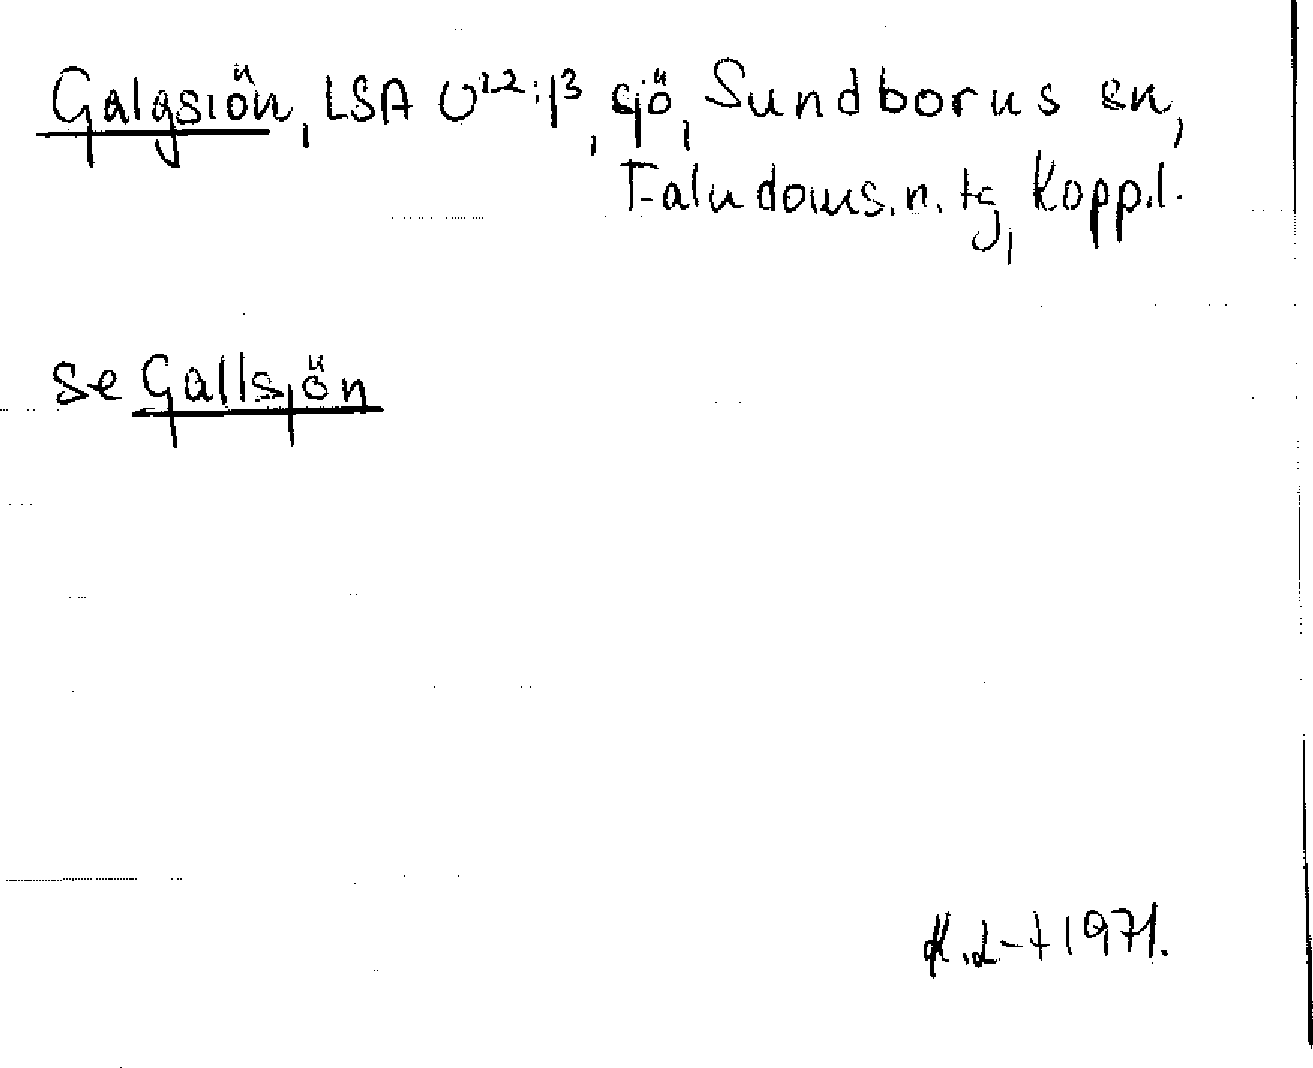 Galgsiön, LSA U¹²:β, sjö, Sundborns sn,
Falu doms.n. tg, Kopp.l.
Se Gallsjön
1971.